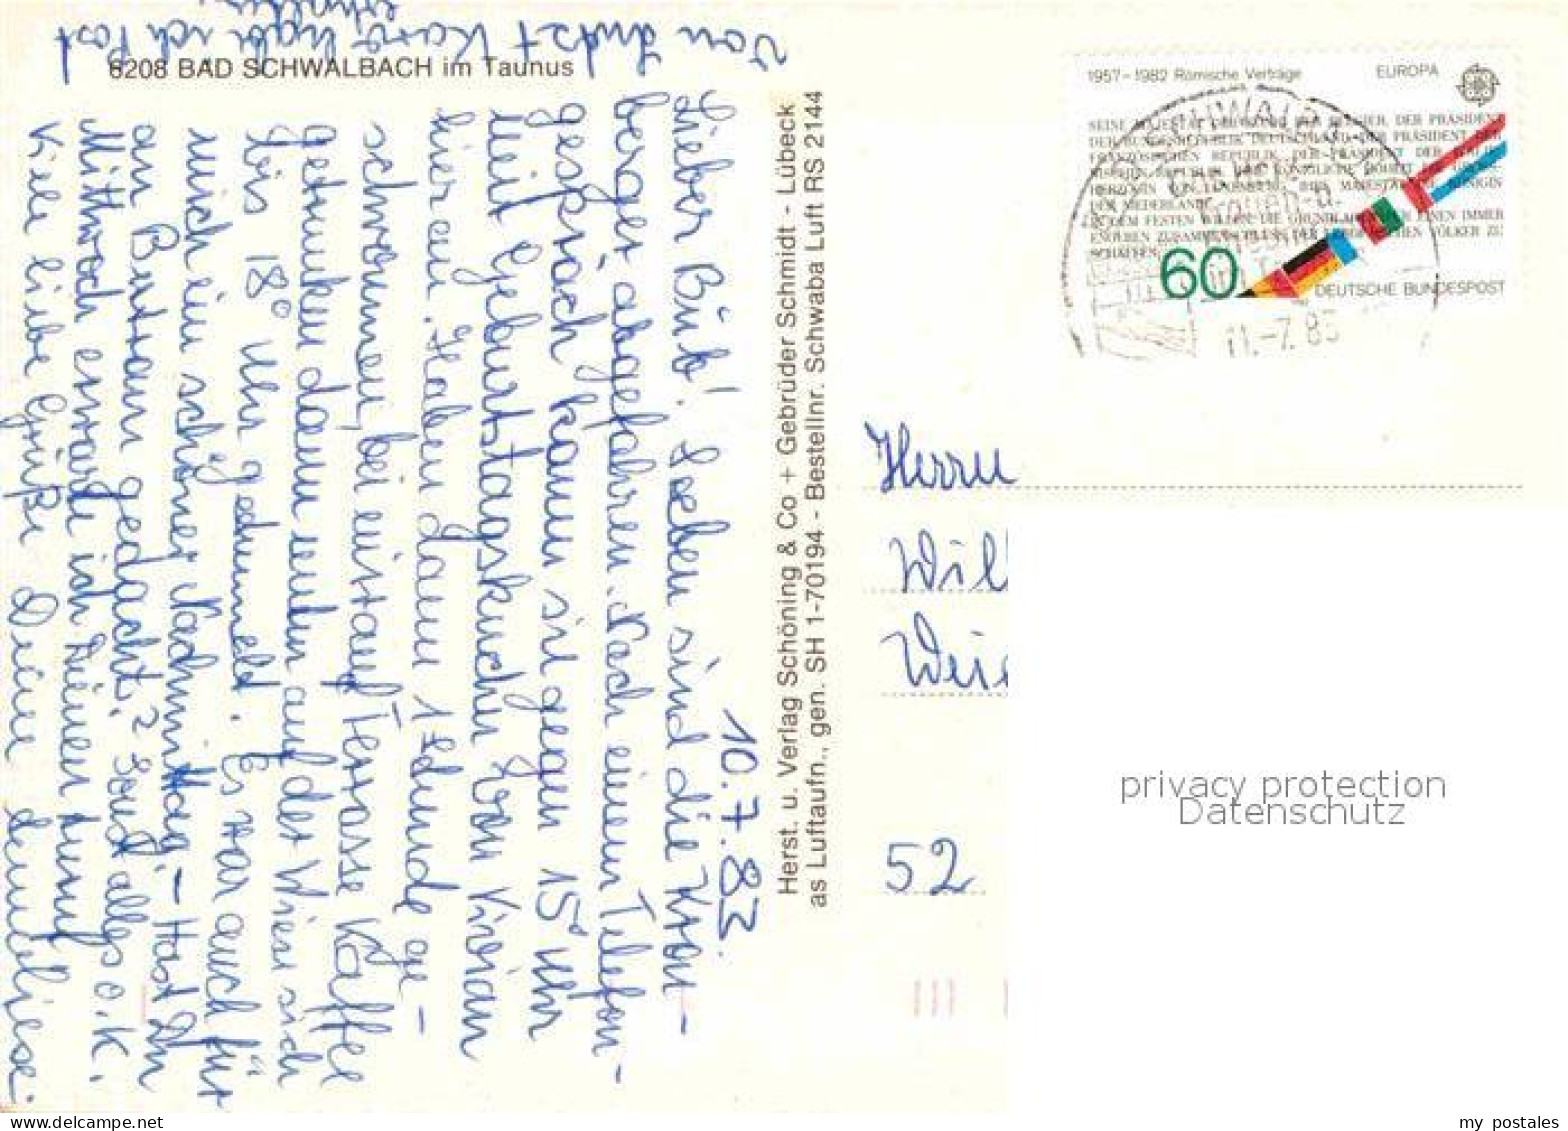 10.7.83.
Lieber Büb! Soeben sind die Kron-
berger abgefahren. Nach einem Telefon-
gespräch kamen sie gegen 15° Uhr
mit Geburtstagskuchen von Vivian
hier an. Haben dann 1 Stunde ge-
schwommen, bei uns auf Terrasse Kaffee
getrunken dann unten auf der Wiese sich
bis 18° Uhr getummelt. Es war auch für
mich ein schöner Nachmittag. – Hast Du
an Bertram gedacht? Sonst alles o.k.
Mittwoch erwarte ich Deinen Anruf
Viele liebe Grüße Deine
Von Karo habe ich Post
erhalten
6208 BAD SCHWALBACH im Taunus
Herst. u. Verlag Schöning & Co + Gebrüder Schmidt - Lübeck
as Luftaufn., gen. SH 1-70194 - Bestellnr. Schwaba Luft RS 2144
1957-1982 Römische Verträge
EUROPA
CEPT
SEINE MAJESTÄT DER KÖNIG DER BELGIER, DER PRÄSIDENT
DER BUNDESREPUBLIK DEUTSCHLAND, DER PRÄSIDENT DER
FRANZÖSISCHEN REPUBLIK, DER PRÄSIDENT DER
REPUBLIK, IHRE KÖNIGLICHE HOHEIT
HERZOGIN VON LUXEMBURG, IHRE MAJESTÄT KÖNIGIN
DER NIEDERLANDE
IN DEM FESTEN WILLEN, DIE GRUNDLAGEN FÜR EINEN IMMER
ENGEREN ZUSAMMENSCHLUSS DER EUROPÄISCHEN VÖLKER ZU
SCHAFFEN
60
DEUTSCHE BUNDESPOST
11.-7.83
Herrn
Wil
Wei
52
privacy protection
Datenschutz
my postales